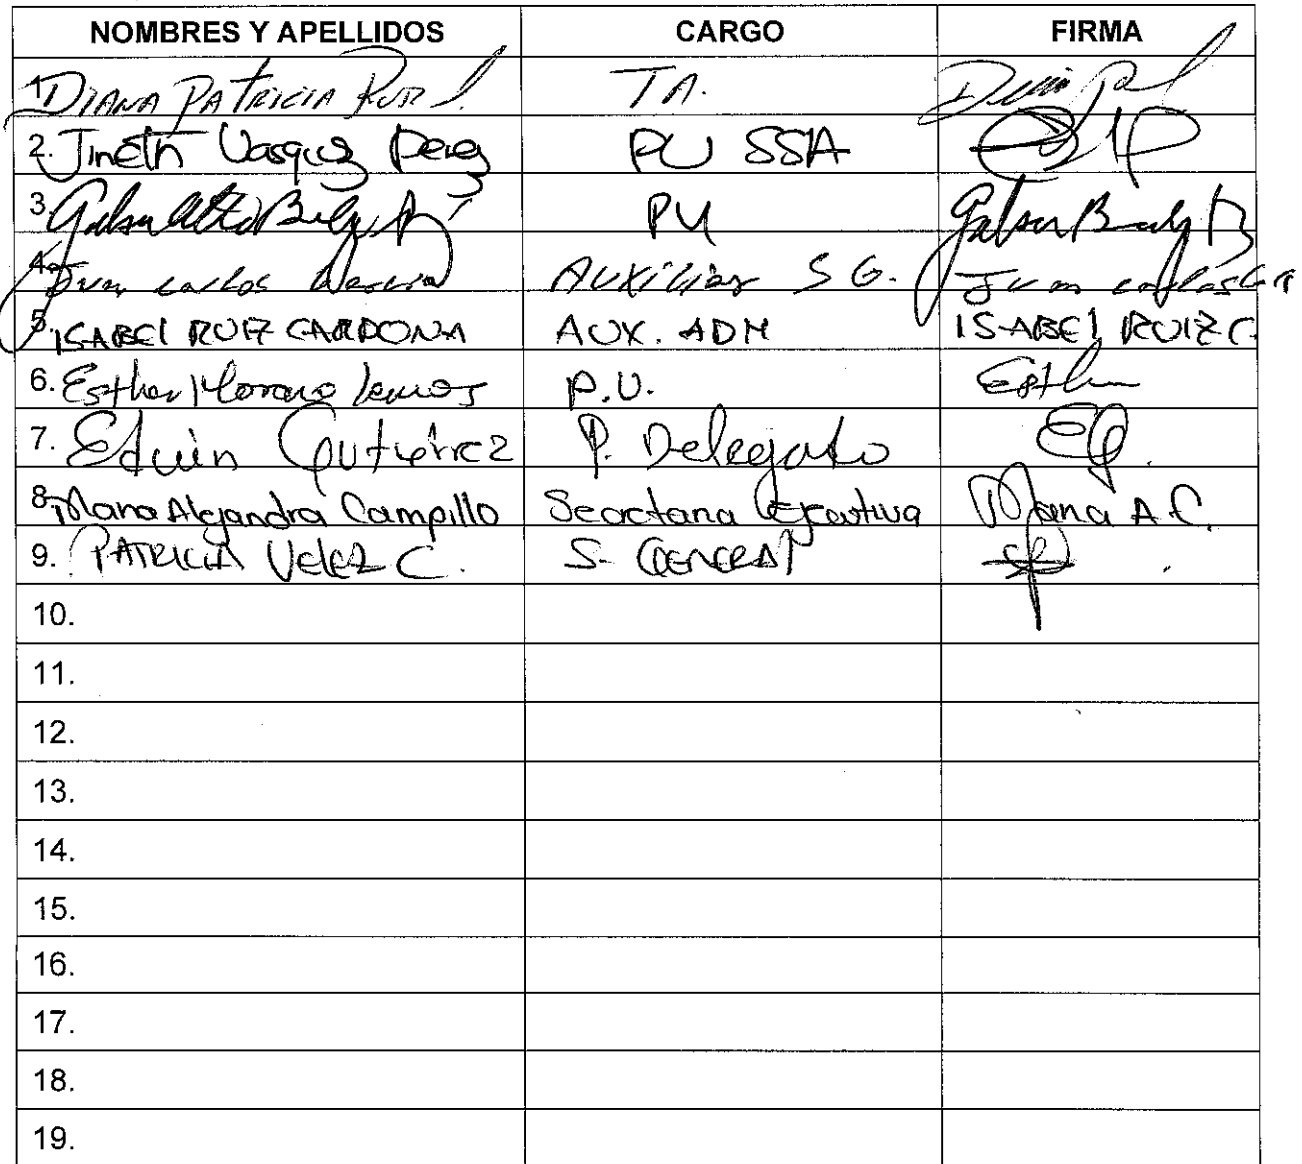 NOMBRES Y APELLIDOS CARGO FIRMA
1. DIANA PATRICIA T A.
2. Jineth Vasquez Perez PU SSA
3. PU
4. Juan carlos AUXiliar S G. Juan carlos
5. ISABEl RUIZ CARDONA AUX. ADM ISABEl RUIZ C.
6. Esther Moreno lemos P.U. Esther
7. Edwin Gutiérrez P. Delegado EG.
8. Maria Alejandra Campillo Secretaria Ejecutiva Maria A.C.
9. PATRICIA Velez C. S. GENERAl
10.
11.
12.
13.
14.
15.
16.
17.
18.
19.